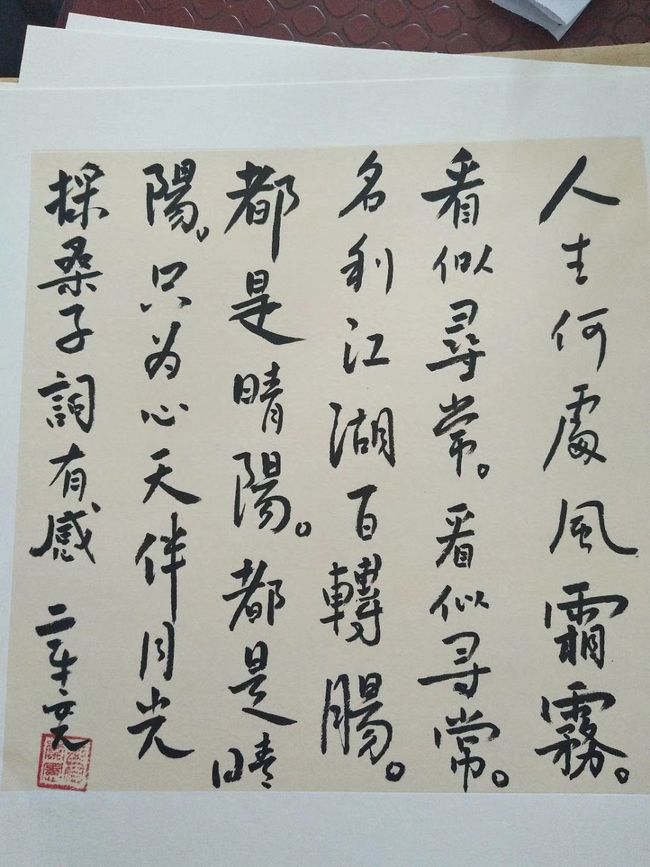 人生何處風霜霧。
看似尋常。看似尋常。
名利江湖百轉腸。
都是晴陽。都是晴
陽。只为心天伴月光
採桑子詞有感